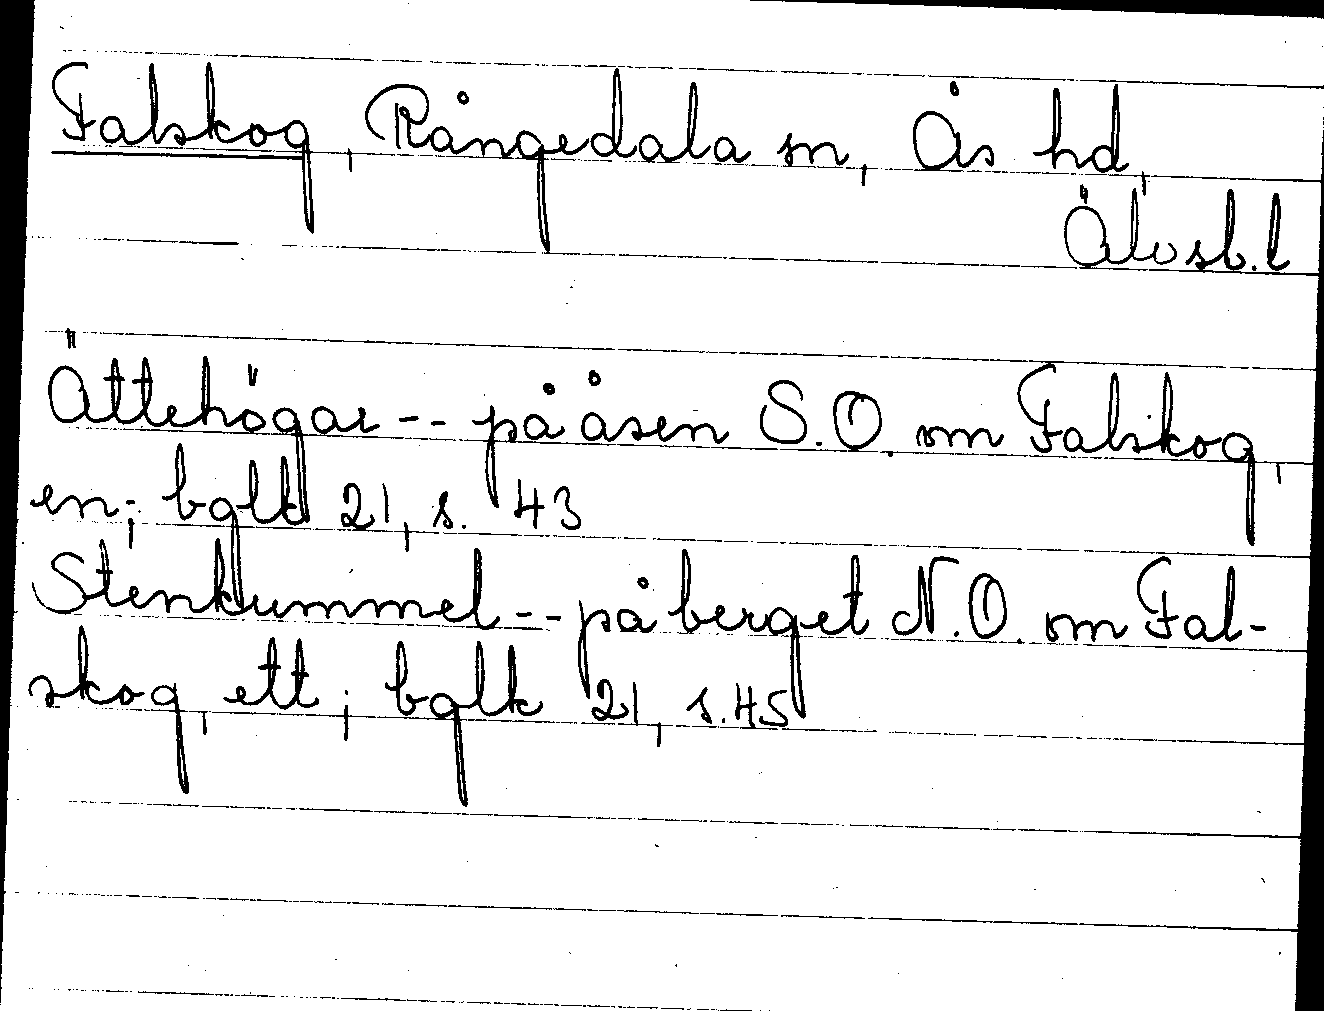 Falskog, Rångedala sn, Ås hd,
Älvsb. l
Ättehögar -- på åsen S.O. om Falskog,
en; bglk 21, s. 43
Stenkummel -- på berget N.O. om Fal-
skog, ett; bglk 21, s. 45